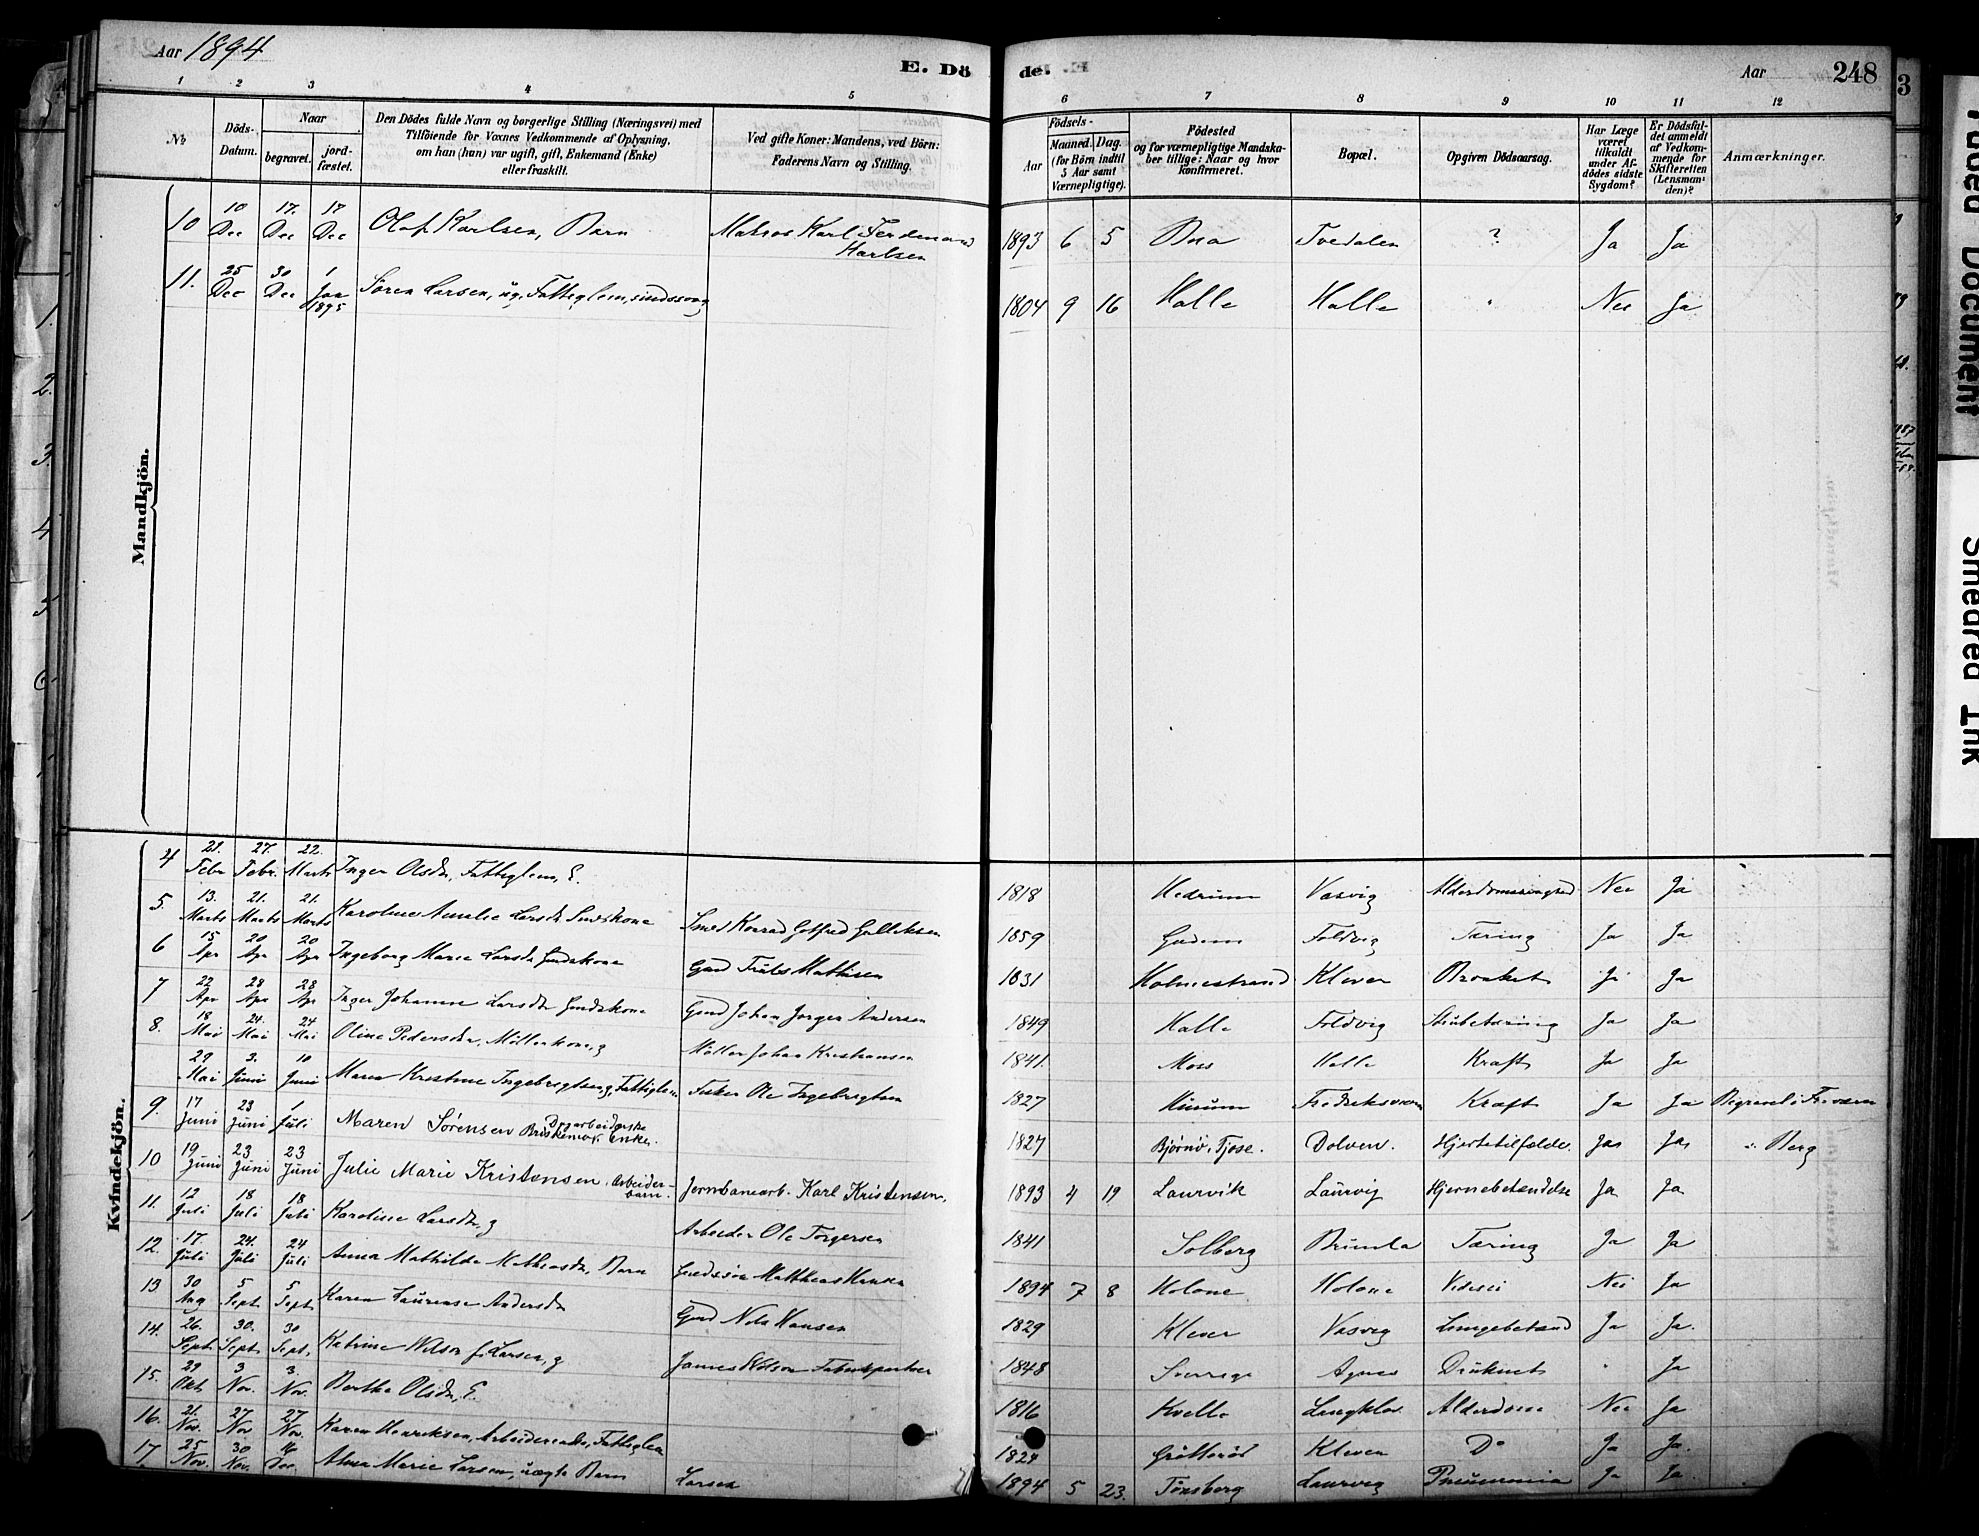 Aar 1894
E. Dö
de.
Aar
248
1 2 3 4 5 6 7 8 9 10 11 12
№
Döds-Datum.
Naar
begravet.
jord-fæstet.
Den Dödes fulde Navn og borgerlige Stilling (Næringsvei) med
Tilföiende for Voxnes Vedkommende af Oplysning,
om han (hun) var ugift, gift, Enkemand (Enke)
eller fraskilt.
Ved gifte Koner: Mandens, ved Börn:
Faderens Navn og Stilling.
Födsels-
Aar
Maaned. Dag.
(for Börn indtil
5 Aar samt
Værnepligtige).
Födested
og for værnepligtige Mandska-
ber tillige: Naar og hvor
konfirmeret.
Bopæl.
Opgiven Dödsaarsag.
Har Læge
været
tilkaldt
under Af-
dödes sidste
Sygdom?
Er Dödsfal-
det anmeldt
af Vedkom-
mende for
Skifteretten
(Lensman-
den)?
Anmærkninger.
Mandkjön.
10 10 Dec 17. Dec 17 Dec Olaf Karlsen, Barn Matros Karl Ferdinand Karlsen 1893 6 5 Tvedalen ? Ja Ja
11. 25 Dec 30 Dec 1 Jan 1895 Søren Larsen, ug. Fattiglem, 1804 9 16 Halle Halle Nei Ja
Kvindekjön.
4 21. Febr 27. Febr. 22. Marts Inger Olsdr, Fattiglem, E. 1818 Hedrum Vasvig Nei Ja
5. 13. Marts 21. Marts 21. Marts Karoline Amalie Larsdr Smed Konrad Gotfred Gulliksen 1859 Foldvig Tæring Ja Ja
6 15 Apr 20 Apr 20 Apr Ingeborg Marie Larsdr Gmd Mathisen 1831 Holmestrand Klever Ja Ja
7 22 Apr 28 Apr 28 Apr Inger Johanne Larsdr Gmd Johan Jørgen Andersen 1849 Halle Foldvig Strubetæring Ja Ja
8. 18 Mai 24. Mai 24 Mai Oline Pedersdr, Møllerkone, g Møller Johan Kristiansen 1841. Moss Halle Kræft Ja Ja
29 Mai 3. Juni 10 Juni Maren Kristine Ingebrigtsen, g, Fattiglem Fisker Ole Ingebrigtsen 1827 Fredriksværn Kræft Ja Ja Begravet i Fr.værn
9. 17 Juni 23 Juni 1 Juli Maren Sørensen Dagarbeiderske enke. 1827 Bjørnø, Tjose. Dolven. Hjertetilfælde. Ja, Ja, Berg
10 19 Juni 23 Juni 23 Juni Julie Marie Kristensen, Arbeider-barn. Jernbanearb. Karl Kristensen. 1893 4 19 Laurvik Laurvig Hjernebetændelse Ja Ja
11. 12 Juli 18 Juli 18 Juli Karoline Larsdr, g Arbeider Ole Torgersen 1841 Solberg Brunla Tæring Ja Ja
12. 17. Juli 24. Juli 24 Juli Anna Mathilde Mathiasdr, Barn Mathias Hansen 1894 7 8 Nei Ja
13 30 Aug 5 Sept. 5 Sept. Karen Laurense Andersdr Gmd Nils Hansen 1829 Klever Vasvig Lungebetænd Ja Ja.
14. 26. Sept. 30. Sept. 30 Sept. Katrine Wilson f. Larsen, g James Wilson 1848 Sverige Agnes Druknet Ja
15. 29 Okt 3 Nov. 3. Nov. Berthe Olsdr, E. 1816 Kvelle Alderdom Nei Ja
16. 21. Nov. 27 Nov 27 Nov. Karen Henriksen, Arbeiderenke, Fattiglem 1824 Klever Do Ja Ja.
17 25 Nov. 30 Nov. 16 Dec. Alma Marie Larsen, uægte Barn Larsen 1894 5 23. Tønsberg Laurvig Pneumonia Ja Ja.
Faded Document
Smeared Ink